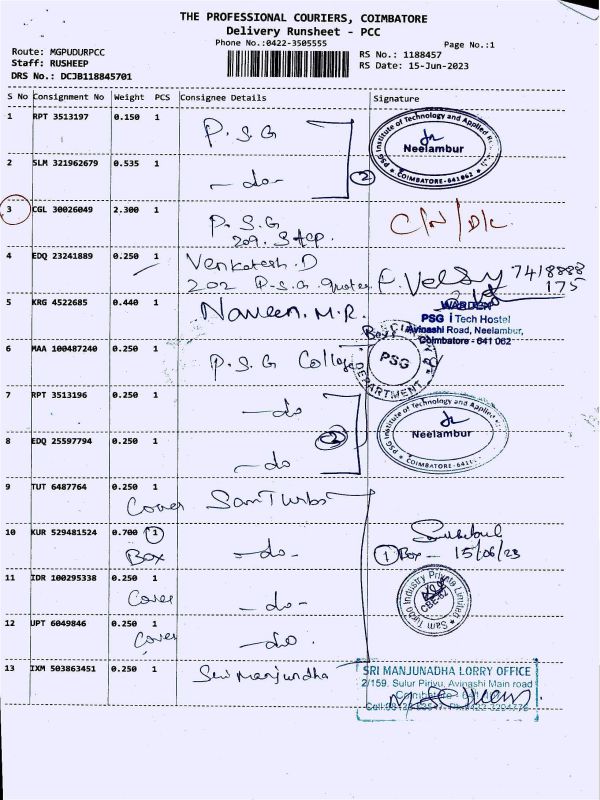 THE PROFESSIONAL COURIERS, COIMBATORE
Delivery Runsheet - PCC
Phone No.:0422-3505555
Page No.:1
Route: MGPUDURPCC
Staff: RUSHEEP
DRS No.: DCJB118845701
RS No.: 1188457
RS Date: 15-Jun-2023
S No Consignment No Weight PCS Consignee Details Signature
1 RPT 3513197 0.150 1 P.S.G
PSG Institute of Technology and Applied
Neelambur
COIMBATORE-641062
2 SLM 321962679 0.535 1 -do- 2
3 CGL 30026049 2.300 1 P.S.G
209.
4 EDQ 23241889 0.250 1 Venkatesh.D
202 P.S.G
7418888
175
5 KRG 4522685 0.440 1 Naveen.M.R.
WARDEN
PSG iTech Hostel
Avinashi Road, Neelambur,
Coimbatore - 641 062
6 MAA 100487240 0.250 1 P.S.G College
PSG
DEPARTMENT
7 RPT 3513196 0.250 1 -do
PSG Institute of Technology and Applied
Neelambur
COIMBATORE-641
8 EDQ 25597794 0.250 1 -do 2
9 TUT 6487764 0.250 1 Sam Turbo
Cover
10 KUR 529481524 0.700 1 -do-
Box
1 Box - 15/06/23
11 IDR 100295338 0.250 1 -do-
Cover
Sam Turbo Industry Private Limited
CBE-62
12 UPT 6049846 0.250 1 -do.
Cover
13 IXM 503863451 0.250 1 Sri Manjundha
SRI MANJUNADHA LORRY OFFICE
2/159, Sulur Pirivu, Avinashi Main road